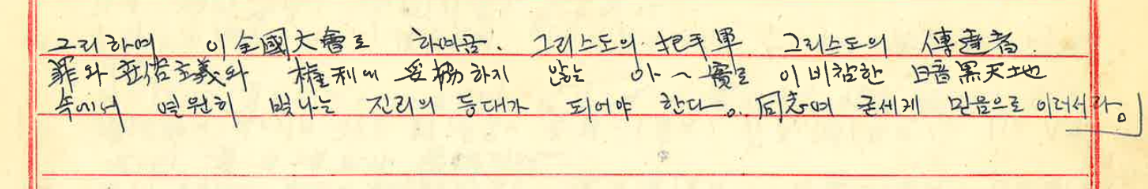 그리하여 이 全國大會로 하여금. 그리스도의 把手軍 그리스도의 傳達者.
罪와 主義와 權利에 妥協하지 않는 아~ 이 비참한 暗黑天地
속에서 영원히 빛나는 진리의 등대가 되어야 한다. 同志여 굳세게 믿음으로 이러서라.」